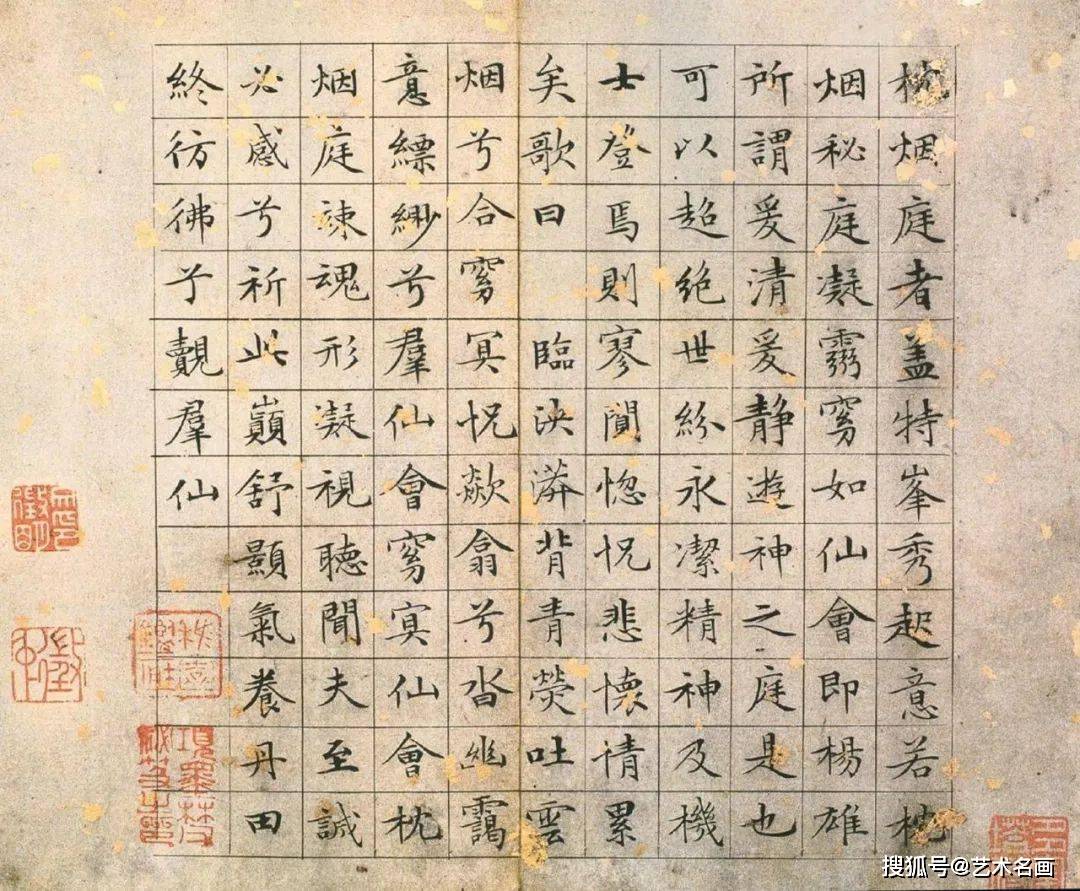 枕烟庭者盖特峯秀起意若枕
烟秘庭凝霛窅如仙會即楊雄
所謂爰清爰静遊神之庭是也
可以超絶世紛永潔精神及機
士登焉則寥闃惚怳悲懷情累
矣歌曰 臨泱漭背青熒吐雲
烟兮合窅冥怳歘翕兮沓幽靄
意縹緲兮羣仙會窅冥仙會枕
烟庭竦魂形凝視聽聞夫至誠
必感兮祈此巔舒顥氣養丹田
終彷彿兮覿羣仙
搜狐号@艺术名画